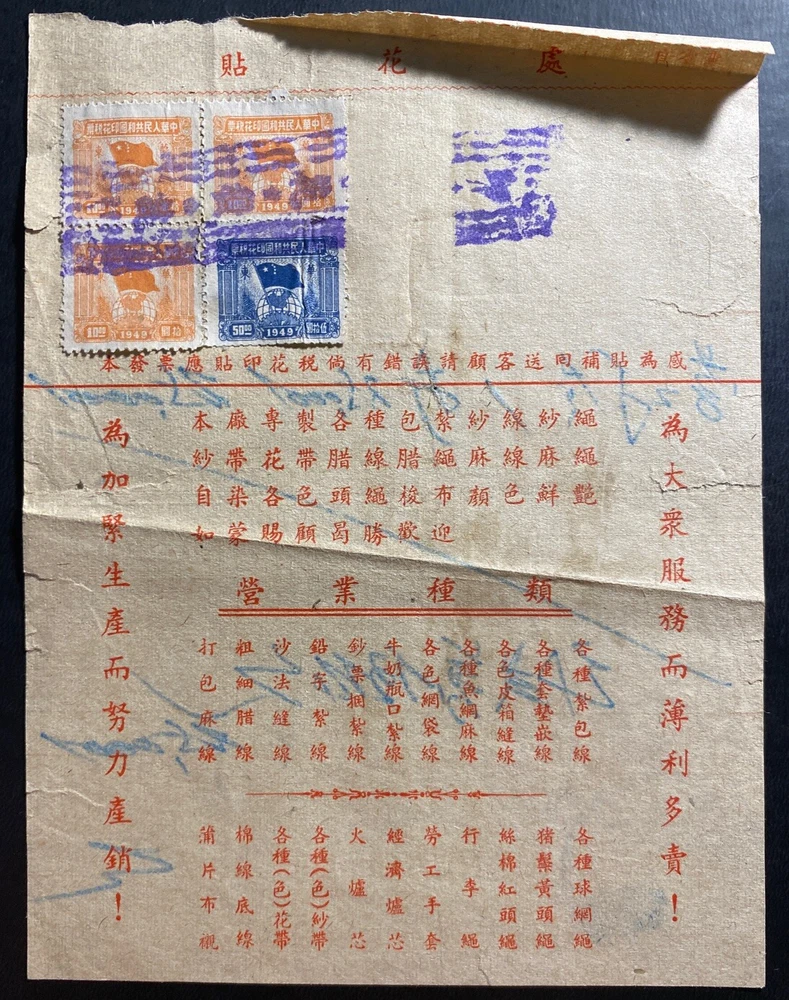 貼花處
中華人民共和國印花稅票
華東
10.00 1949 拾圓
中華人民共和國印花稅票
10.00 1949 拾圓
10.00 1949 拾圓
中華人民共和國印花稅票
華東
50.00 1949 伍拾圓
本發票應貼印花稅倘有錯誤請顧客送回補貼為感
為大衆服務而薄利多賣!
本廠專製各種包紮紗線紗繩
紗帶花帶腊線腊繩麻線麻繩
自染各色頭繩梭布顏色鮮艷
如蒙賜顧曷勝歡迎
營業種類
各種紮包線
各種套墊嵌線
各色皮箱縫線
各種魚網麻線
各色網袋線
牛奶瓶口紮線
鈔票捆紮線
鉛字紮線
沙法縫線
粗細腊線
打包麻線
各種球網繩
猪鬃黃頭繩
絲棉紅頭繩
行李繩
勞工手套
經濟爐芯
火爐芯
各種(色)紗帶
各種(色)花帶
棉線底線
蒲片布襯
為加緊生產而努力產銷!